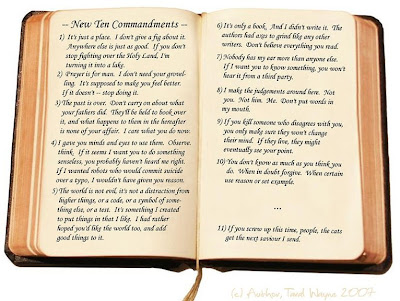 -- New Ten Commandments --
1) It's just a place.  I don't give a fig about it.
Anywhere else is just as good.  If you don't
stop fighting over the Holy Land, I'm
turning it into a lake.
2) Prayer is for man.  I don't need your grovel-
ling.  It's supposed to make you feel better.
If it doesn't -- stop doing it.
3) The past is over.  Don't carry on about what
your fathers did.  They'll be held to book over
it, and what happens to them in the hereafter
is none of your affair.  I care what you do now.
4) I gave you minds and eyes to use them.  Observe.
Think.  If it seems I want you to do something
senseless, you probably haven't heard me right.
If I wanted robots who would commit suicide
over a typo, I wouldn't have given you reason.
5) The world is not evil, it's not a distraction from
higher things, or a code, or a symbol of some-
thing else, or a test.  It's something I created
to put things in that I like.  I had rather
hoped you'd like the world too, and add
good things to it.
6) It's only a book.  And I didn't write it.  The
authors had axes to grind like any other
writers.  Don't believe everything you read.
7) Nobody has my ear more than anyone else.
If I want you to know something, you won't
hear it from a third party.
8) I make the judgements around here.  Not
you.  Not him.  Me.  Don't put words in
my mouth.
9) If you kill someone who disagrees with you,
you only make sure they won't change
their mind.  If they live, they might
eventually see your point.
10) You don't know as much as you think you
do.  When in doubt forgive.  When certain
use reason or set example.
...
11) If you screw up this time, people, the cats
get the next saviour I send.
(c) Author, Taod Wayne 2007